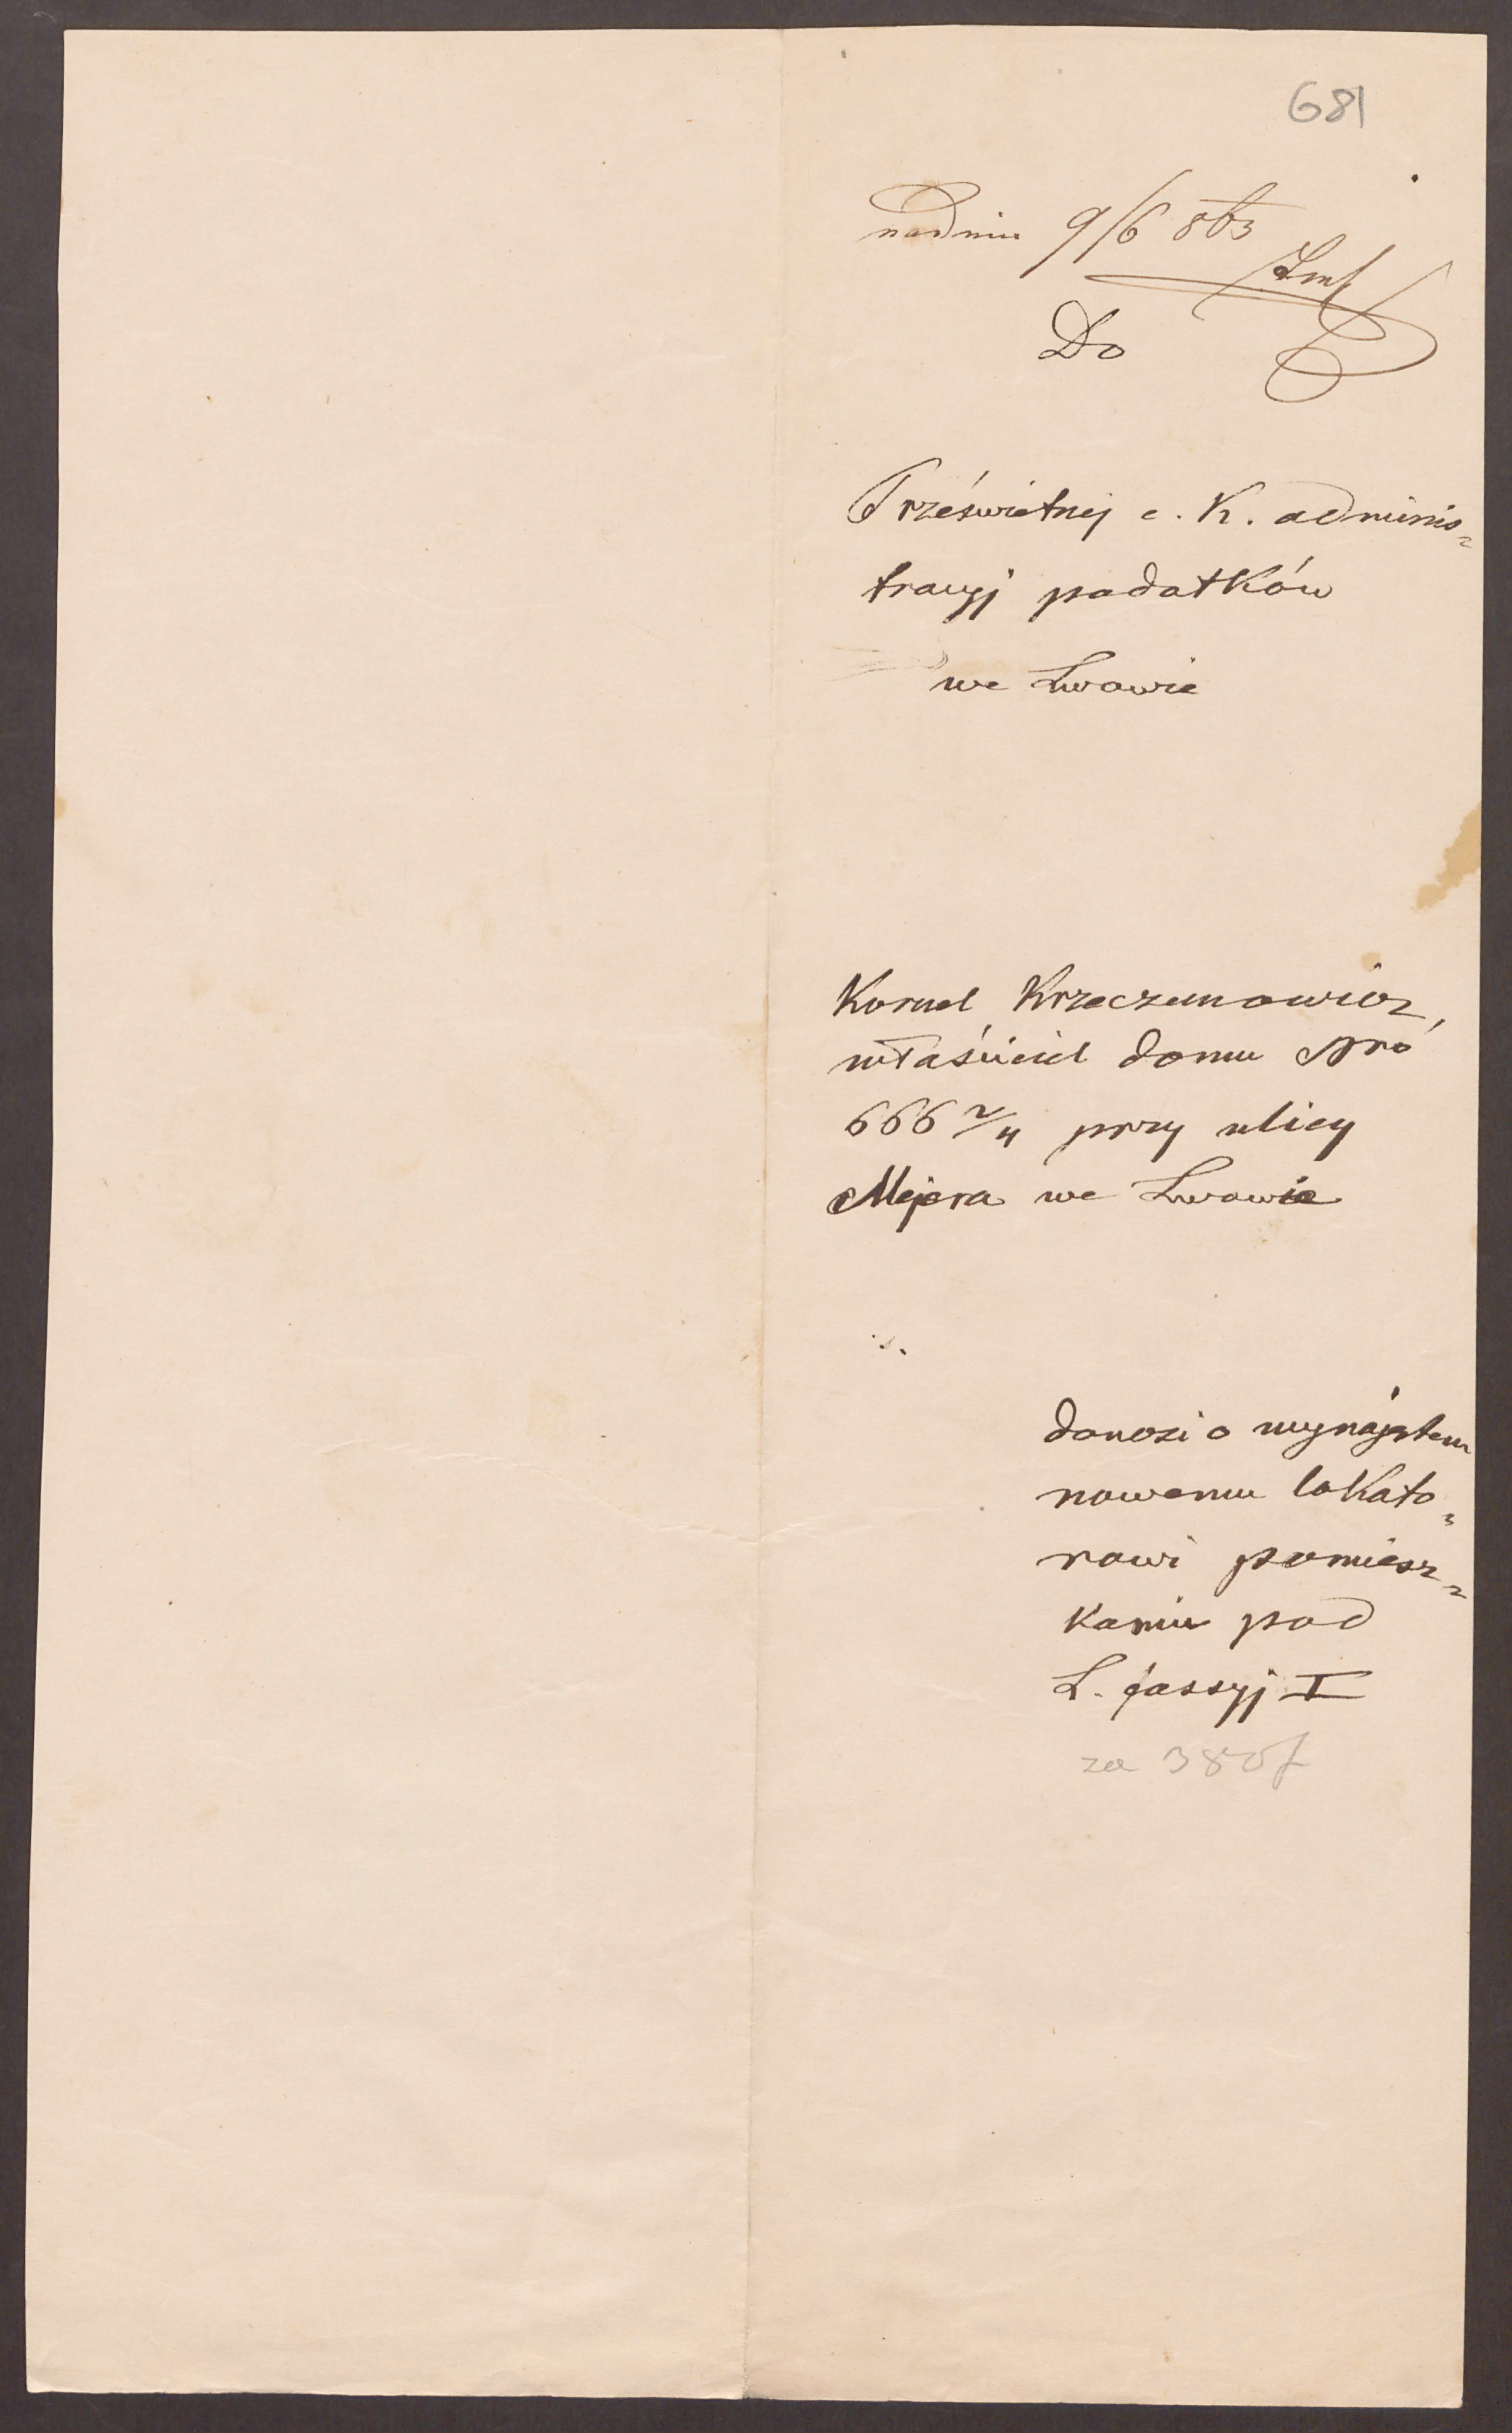 681
nadniu 9/6 863
Do
Prześwietnej c. K. adminis=
tracyj podatków
we Lwowie
Kornel Krzeczunowicz,
właściciel domu Nro
666 2/4 przy ulicy
Mejera we Lwowie
donosi o wynajętem
nowemu lokato=
rowi pomiesz=
kaniu pod
L. fassyj I
za 380 f